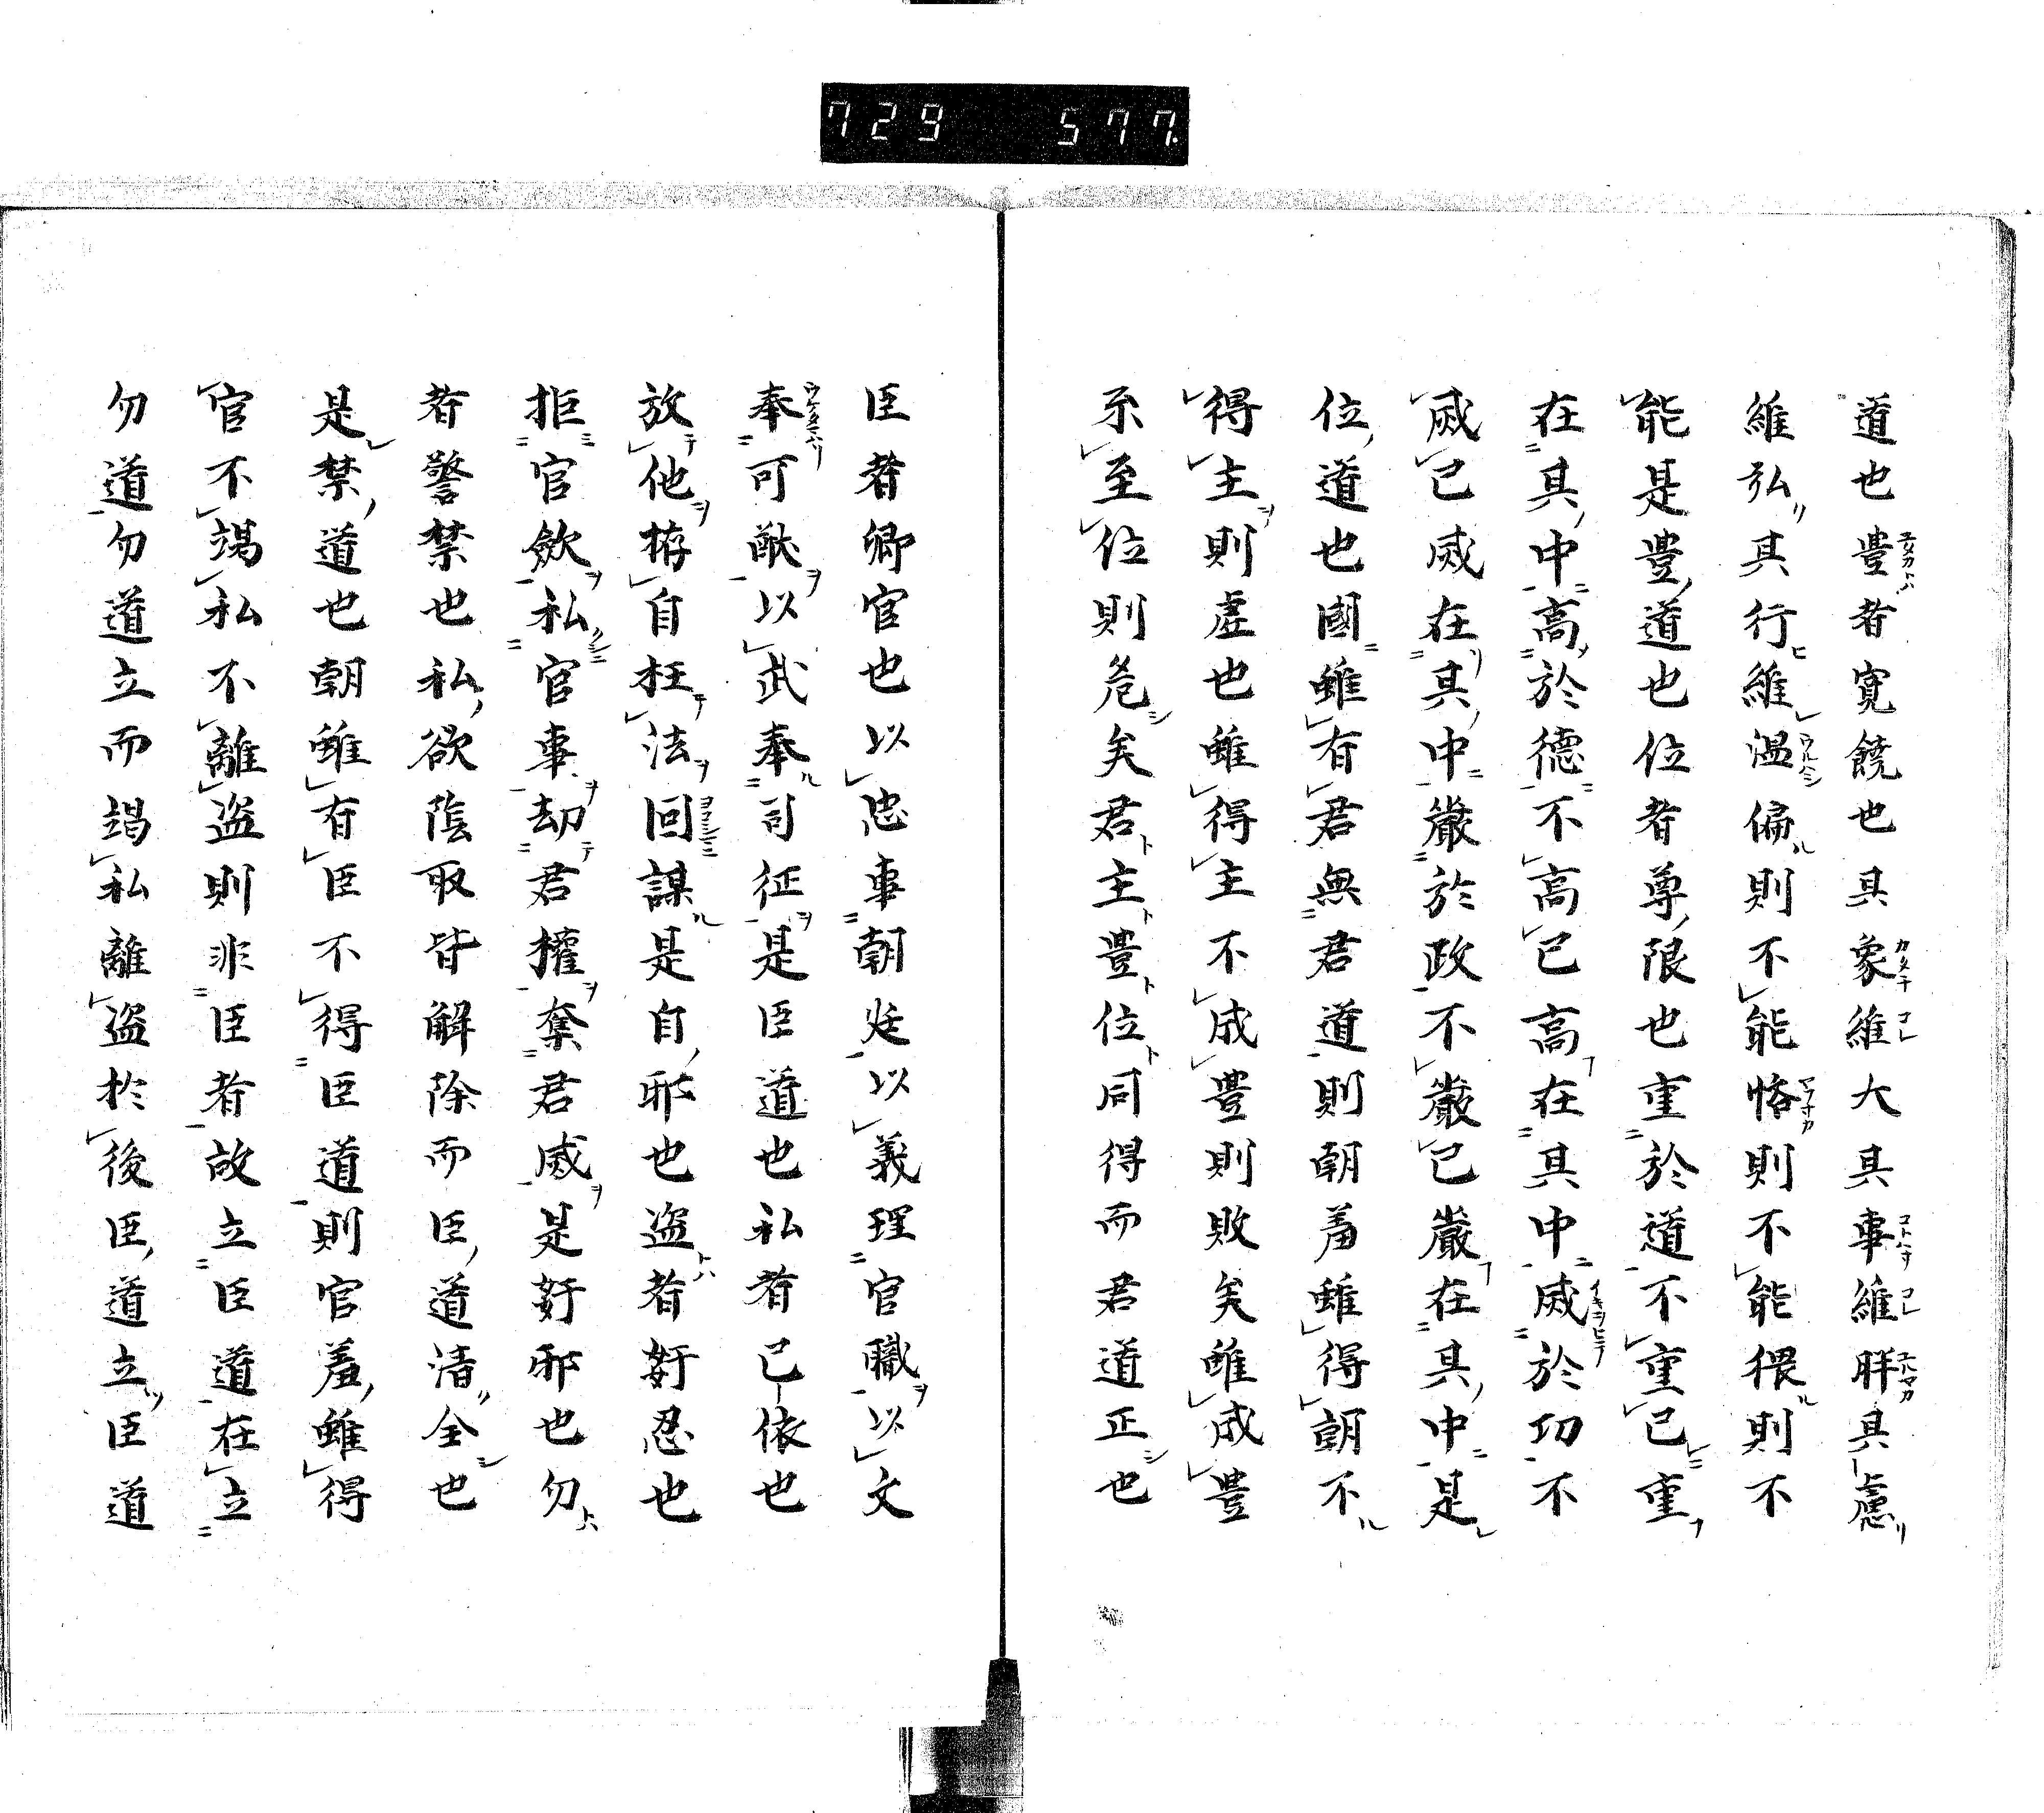 729 577.
道也豊者寛饒也其象維大其事維胖其慮
維弘其行維温偏則不能悋則不能猥則不
能是豊道也位者尊限也重於道不重己重
在其中高於徳不高己高在其中威於功不
威己威在其中嚴於政不嚴己嚴在其中是
位道也國雖有君無君道則朝羞雖得朝不
得主則虚也雖得主不成豊則敗矣雖成豊
不至位則危矣君主豊位同得而君道正也
臣者卿官也以忠事朝廷以義理官職以文
奉可猷以武奉司征是臣道也私者己依也
放他掊自枉法回謀是自邪也盗者奸忍也
拒官斂私官事劫君權奪君威是奸邪也勿
者警禁也私欲陰取皆解除而臣道清全也
是禁道也朝雖有臣不得臣道則官羞雖得
官不竭私不離盗則非臣者故立臣道在立
勿道勿道立而竭私離盗於後臣道立臣道